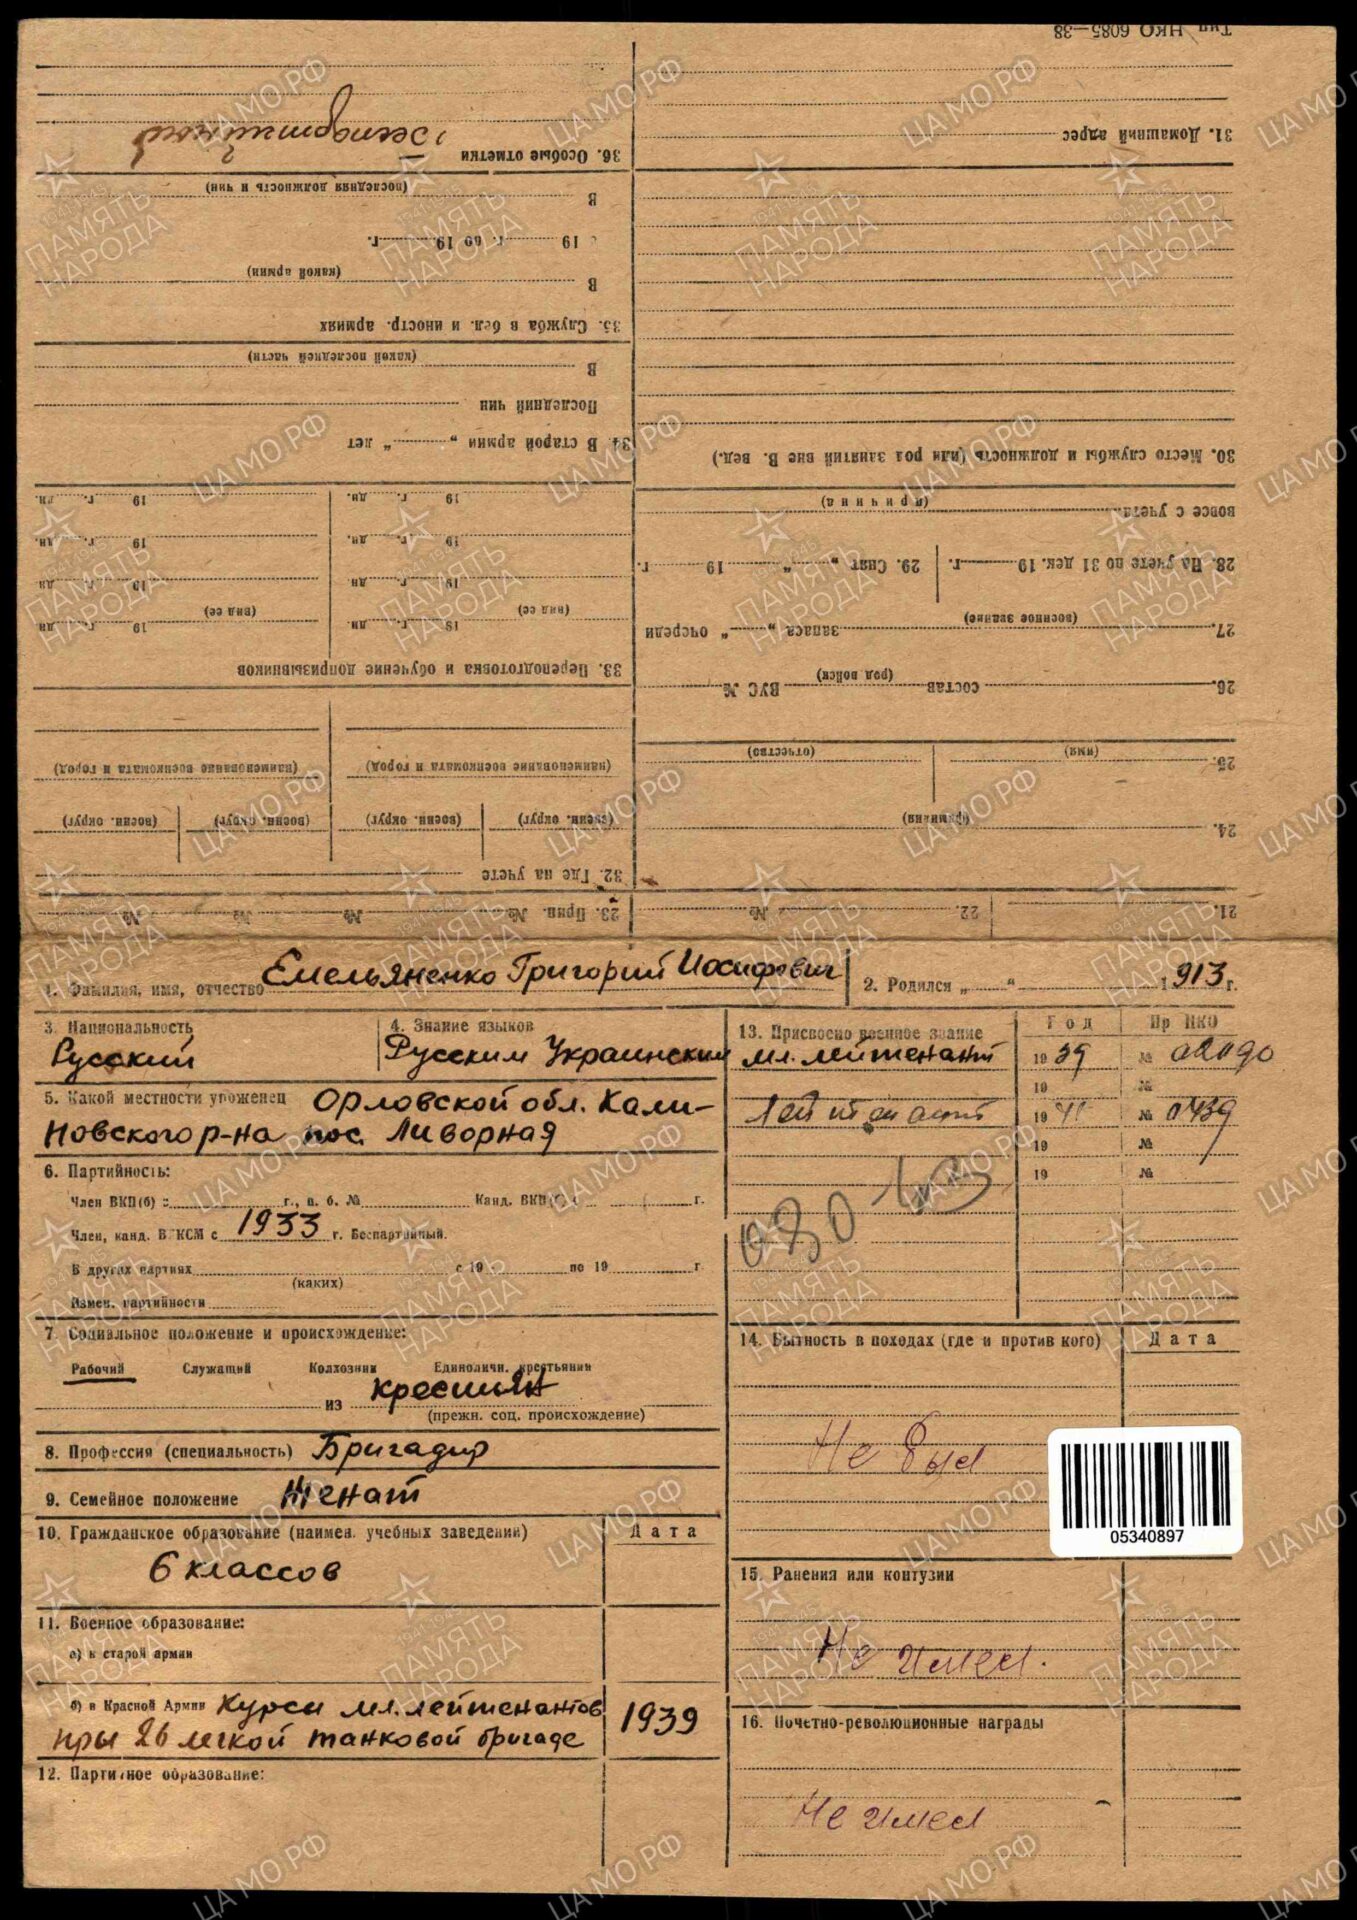 Тип НКО 6085—38
31. Домашний адрес
30. Место службы и должность (или род занятий вне В. вед.)
вовсе с учета
(причина)
28. На учете по 31 дек. 19 г.
29. Снят „ “ 19 г.
27. (военное звание) запаса „ “ очереди
26. состав (род войск) ВУС №
25. (имя) (отчество)
24. (фамилия)
21. 22. №
36. Особые отметки Беспартийный
(последняя должность и чин)
В
с 19 г. по 19 г.
(какой армии)
В
35. Служба в бел. и иностр. армиях
(какой последней части)
В
Последний чин
34. В старой армии „ “ лет
19 г. дн. 19 г. дн.
19 г. дн. 19 г. дн.
19 г. дн 19 г. дн
(вид ее) (вид ее)
19 г. дн 19 г. дн
33. Переподготовка и обучение допризывников
(наименование военкомата и город) (наименование военкомата и город)
(военн. округ) (военн. округ) (военн. округ) (военн. округ)
32. Где на учете
23. Прип. № № № №
1. Фамилия, имя, отчество Емельяненко Григорий Иосифович
2. Родился „ “ 1913 г.
3. Национальность Русский
4. Знание языков Русским Украинским
5. Какой местности уроженец Орловской обл. Кали-
новского р-на пос. Ливорная
6. Партийность:
Член ВКП(б) с г., п. б. № Канд. ВКП(б) с г.
Член, канд. ВЛКСМ с 1933 г. Беспартийный.
В других партиях с 19 по 19 г
(каких)
Измен. партийности
7. Социальное положение и происхождение:
Рабочий Служащий Колхозник Единоличн. крестьянин
из крестьян
(прежн. соц. происхождение)
8. Профессия (специальность) Бригадир
9. Семейное положение Женат
10. Гражданское образование (наимен. учебных заведений) Дата
6 классов
11. Военное образование:
а) в старой армии
б) в Красной Армии Курсы мл. лейтенантов
при 26 легкой танковой бригаде 1939
12. Партийное образование:
13. Присвоено военное звание Год Пр НКО
мл. лейтенант 1939 № 02090
19 №
Лейтенант 1941 № 0439
19 №
19 №
080
14. Бытность в походах (где и против кого) Дата
Не был
05340897
15. Ранения или контузии
Не имел.
16. Почетно-революционные награды
Не имел
ЦАМО.РФ
1941-1945
ПАМЯТЬ
НАРОДА